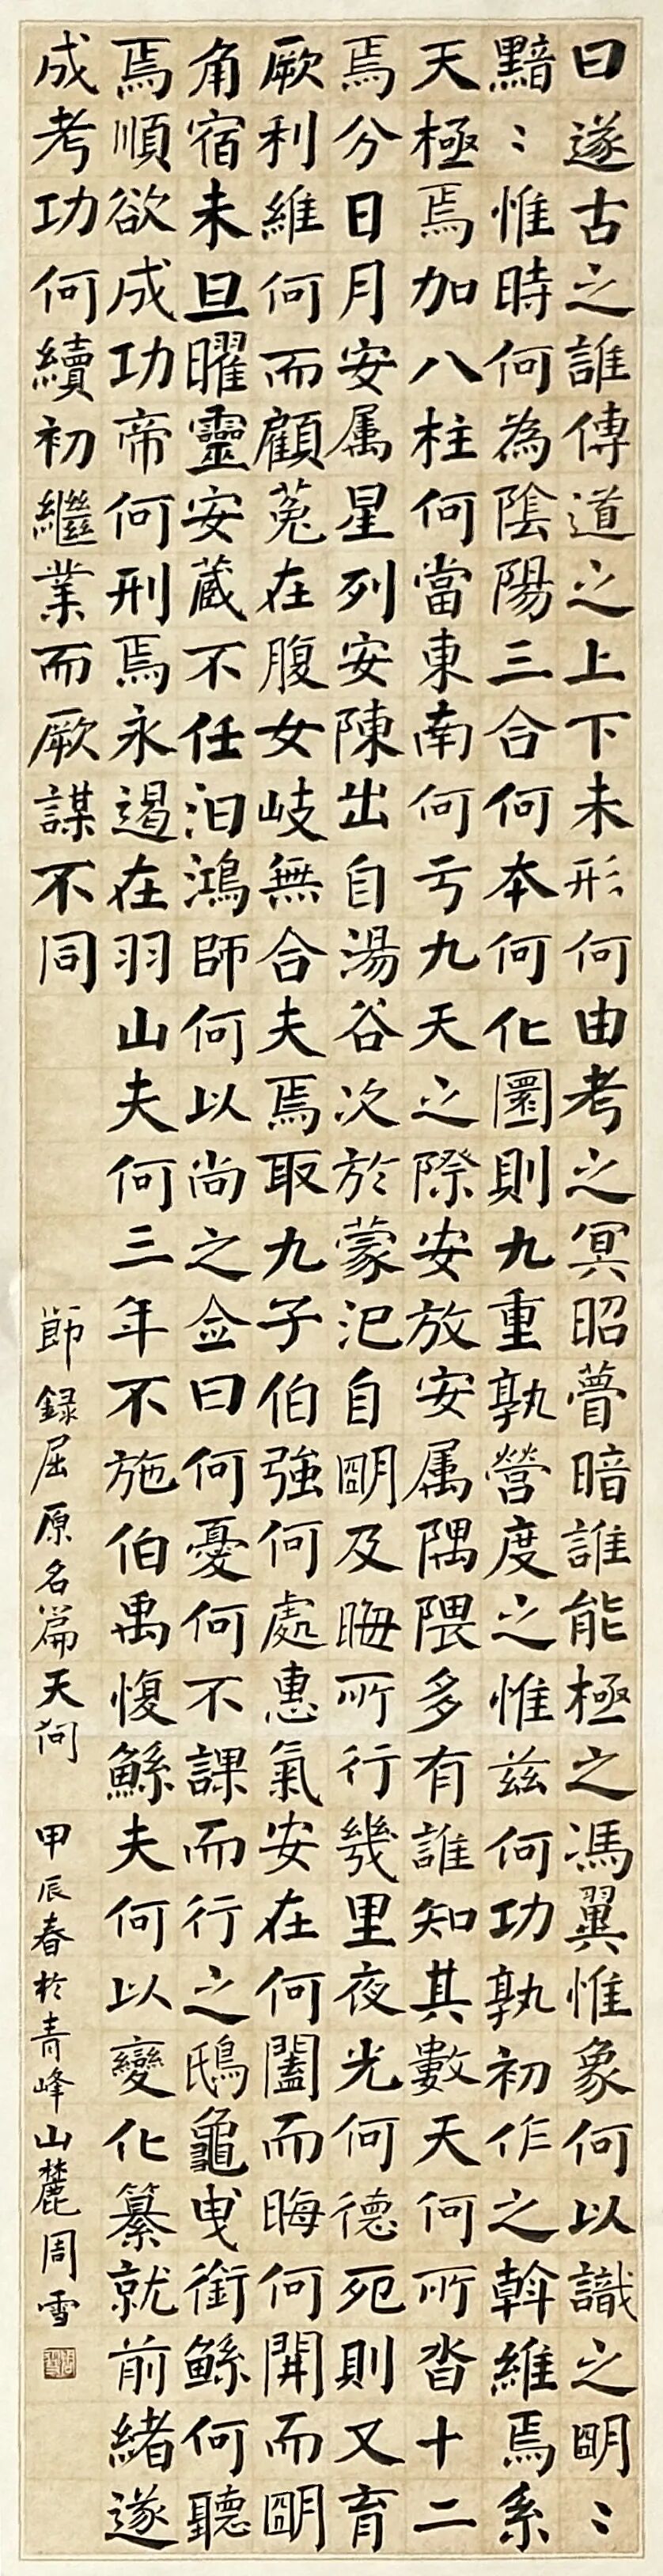 曰遂古之誰傳道之上下未形何由考之冥昭瞢暗誰能極之馮翼惟象何以識之朙〻
黯〻惟時何為陰陽三合何本何化圜則九重孰營度之惟茲何功孰初作之斡維焉系
天極焉加八柱何當東南何亏九天之際安放安属隅隈多有誰知其數天何所沓十二
焉分日月安属星列安陳出自湯谷次於蒙汜自朙及晦所行幾里夜光何德死則又育
厥利維何而顧菟在腹女岐無合夫焉取九子伯強何處惠氣安在何闔而晦何開而朙
角宿未旦曜靈安蔵不任汩鴻師何以尚之僉曰何憂何不課而行之鴟龜曳銜鯀何聽
焉順欲成功帝何刑焉永遏在羽山夫何三年不施伯禹愎鯀夫何以變化纂就前緒遂
成考功何續初繼業而厥謀不同
節録屈原名篇天问 甲辰春於青峰山麓周雪